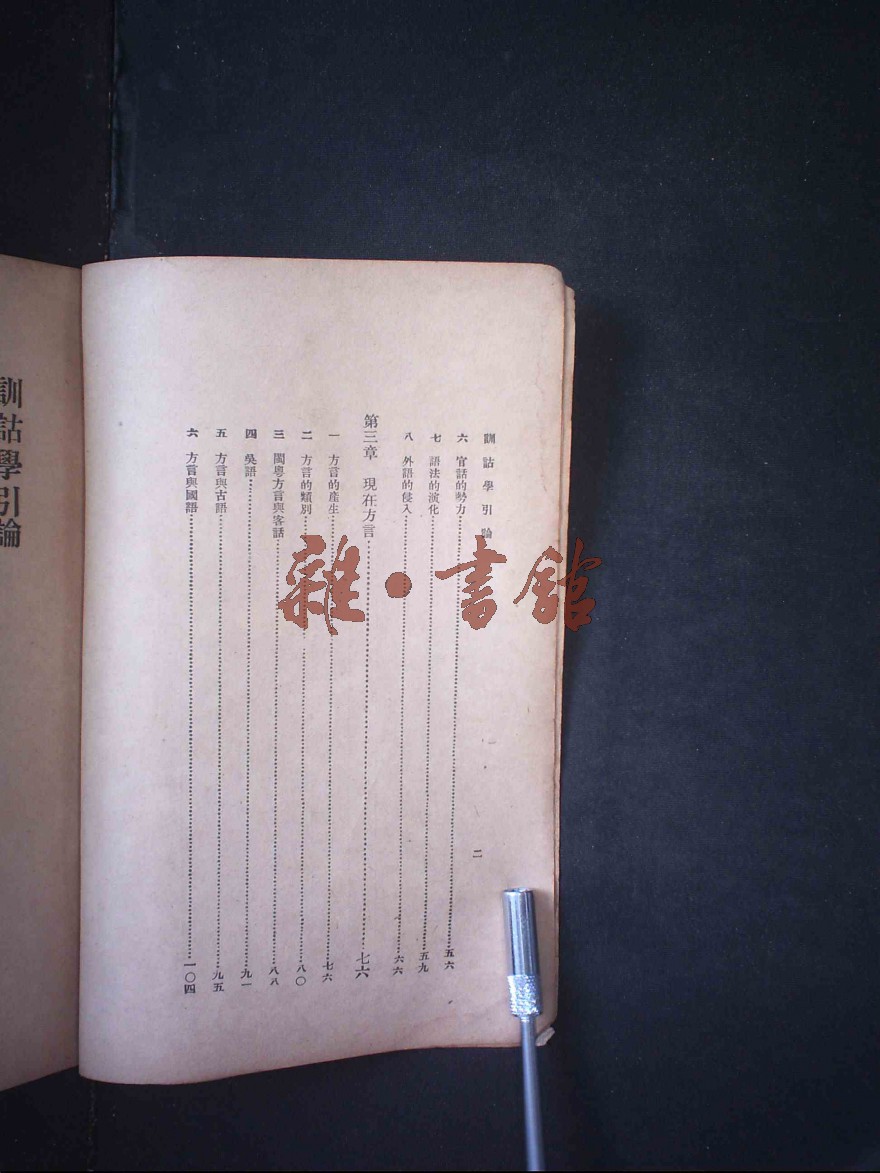 訓詁學引論
六　官話的勢力……五六
七　語法的演化……五九
八　外語的侵入……六六
第三章　現在方言……七六
一　方言的產生……七六
二　方言的類別……八〇
三　閩粵方言與客話……八八
四　吳語……九一
五　方言與古語……九五
六　方言與國語……一〇四
二
訓詁學引論
雜・書館